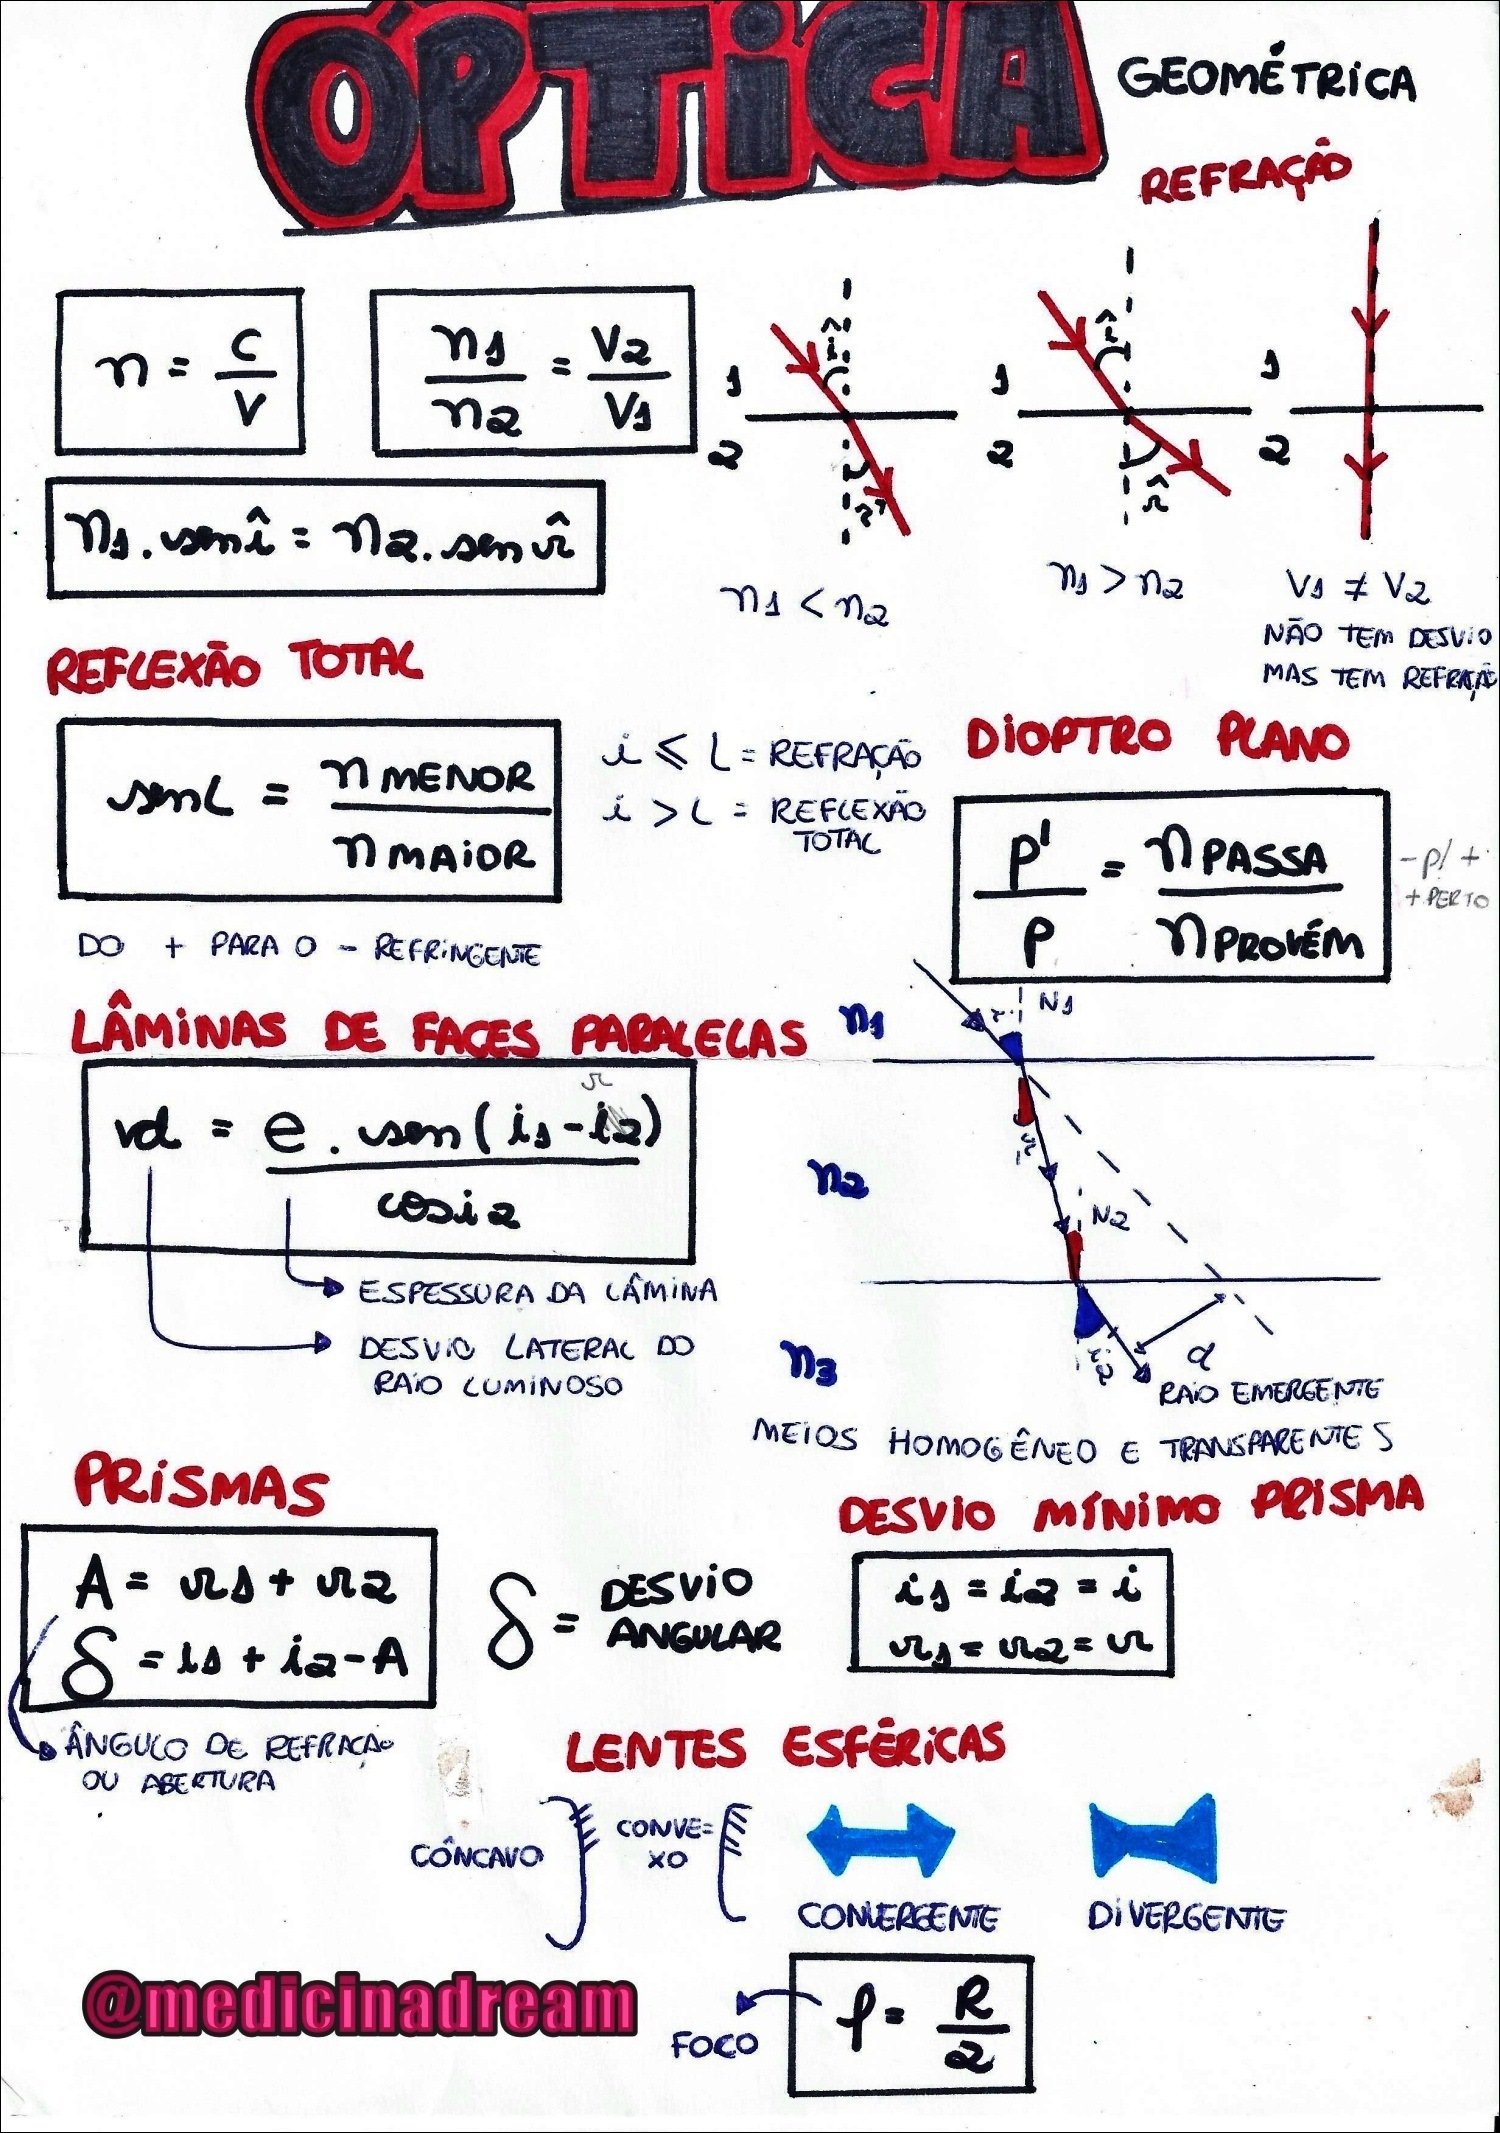 ÓPTICA
GEOMÉTRICA
REFRAÇÃO
n = c/v
n1/n2 = v2/v1
n1.sen î = n2.sen r̂
1
2
î
r̂
n1 < n2
1
2
î
r̂
n1 > n2
1
2
V1 ≠ V2
NÃO TEM DESVIO
MAS TEM REFRAÇÃO
REFLEXÃO TOTAL
senL = nMENOR/nMAIOR
i ⩽ L = REFRAÇÃO
i > L = REFLEXÃO
TOTAL
DO + PARA O - REFRINGENTE
DIOPTRO PLANO
p'/p = nPASSA/nPROVÉM
-p/ +
+ PERTO
LÂMINAS DE FACES PARALELAS
r
d = e . sen(i1-i2)/cosi2
ESPESSURA DA LÂMINA
DESVIO LATERAL DO
RAIO LUMINOSO
n1
N1
n2
r
N2
n3
i2
d
RAIO EMERGENTE
MEIOS HOMOGÊNEO E TRANSPARENTES
PRISMAS
A = r1 + r2
δ = i1 + i2 - A
δ = DESVIO
ANGULAR
ÂNGULO DE REFRAÇÃO
OU ABERTURA
DESVIO MÍNIMO PRISMA
i1 = i2 = i
r1 = r2 = r
LENTES ESFÉRICAS
CÔNCAVO
CONVE=
XO
CONVERGENTE
DIVERGENTE
f = R/2
FOCO
@medicinadream